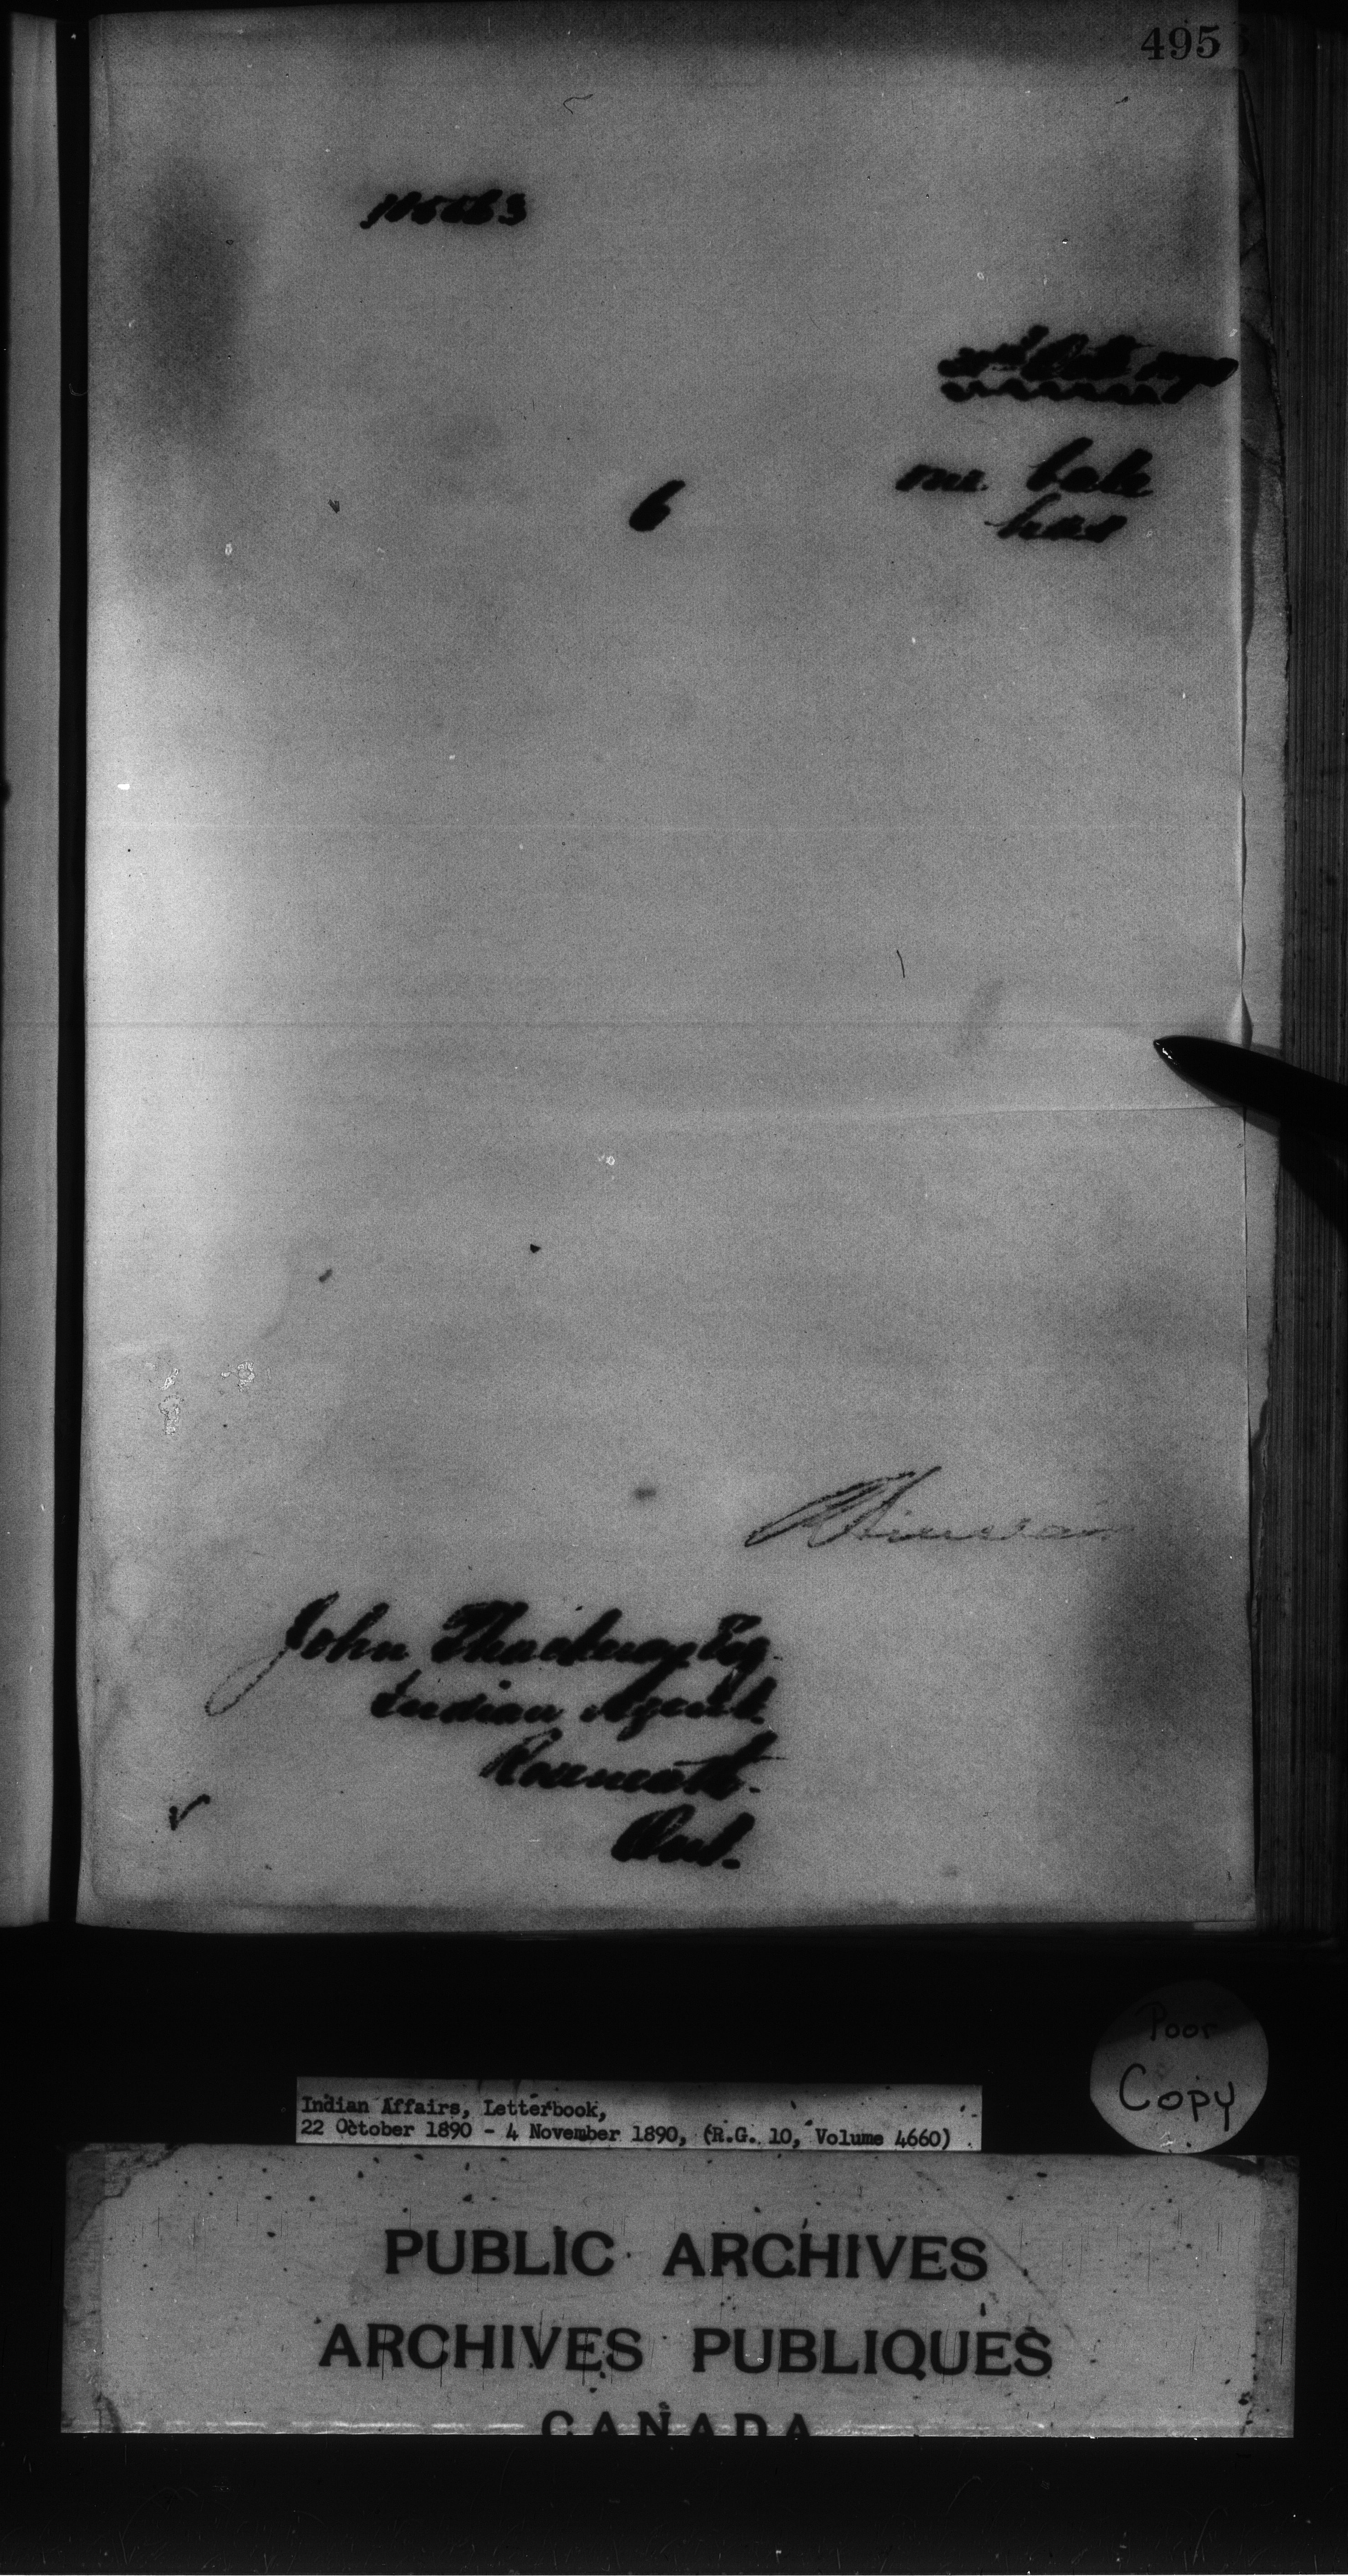 495
6
one bale
has
John Thackeray Esq.
Indian Agent.
Roseneath.
Ont.
Poor
Copy
Indian Affairs, Letterbook,
22 October 1890 - 4 November 1890, (R.G. 10, Volume 4660)
PUBLIC ARCHIVES
ARCHIVES PUBLIQUES
CANADA